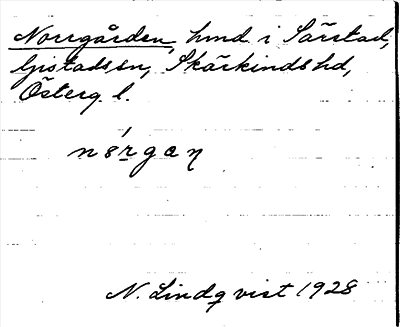 Norrgården, hmd. i Sörstad,
Gistads sn, Skärkinds hd,
Österg. l.
nórgaɳ
N. Lindqvist 1928